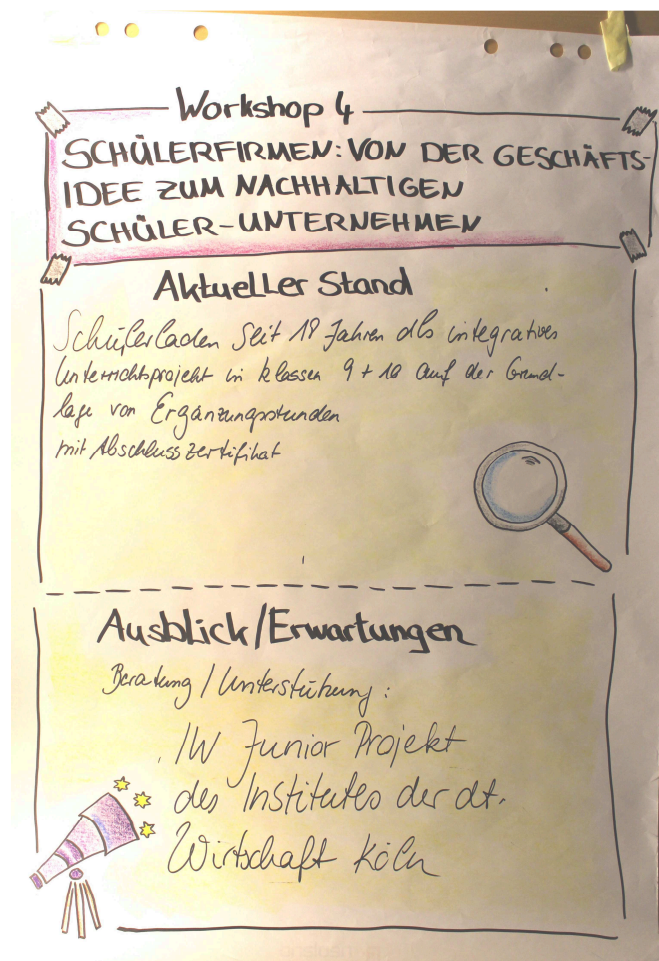 Workshop 4
SCHÜLERFIRMEN: VON DER GESCHÄFTS-
IDEE ZUM NACHHALTIGEN
SCHÜLER-UNTERNEHMEN
Aktueller Stand
Schülerladen seit 18 Jahren als integratives
Unterrichtsprojekt in Klassen 9 + 10 auf der Grund-
lage von Ergänzungsstunden
mit Abschlusszertifikat
Ausblick/Erwartungen
Beratung / Unterstützung:
IW Junior Projekt
des Institutes der dt.
Wirtschaft Köln